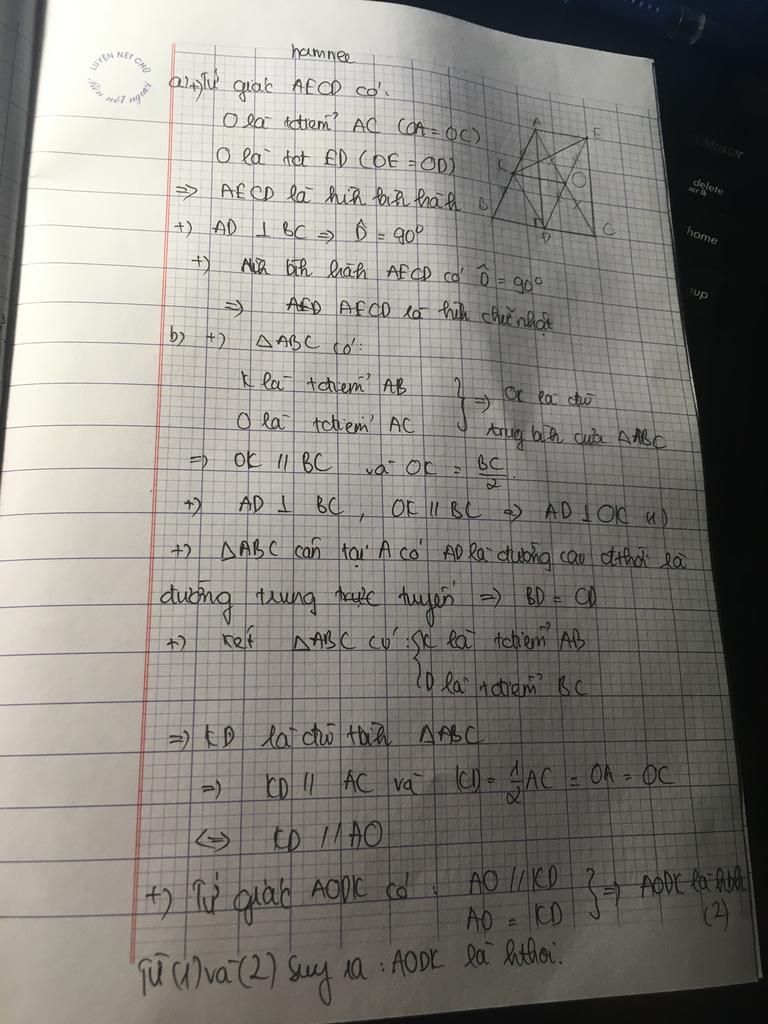 hamnee
LUYỆN NÉT CHỮ
Rèn nết người
a) +) Tứ giác AECD có:
O là tđiểm AC (OA = OC)
O là tđt ED (OE = OD)
=> AECD là hình bình hành
+) AD ⊥ BC => D̂ = 90°
+) Hình bình hành AECD có D̂ = 90°
=> AECD là hình chữ nhật
A
E
K
O
B
D
C
b) +) △ABC có:
K là tđiểm AB
O là tđiểm AC
} => OK là đtb
trung bình của △ABC
=> OK // BC và OK = BC/2
+) AD ⊥ BC, OK // BC => AD ⊥ OK (1)
+) △ABC cân tại A có AD là đường cao đthời là
đường trung tuyến => BD = CD
+) Xét △ABC có: { K là tđiểm AB
D là tđiểm BC
=> KD là đtb △ABC
=> KD // AC và KD = 1/2 AC = OA = OC
<=> KD // AO
+) Tứ giác AODK có: AO // KD
AO = KD } => AODK là hbh
(2)
Từ (1) và (2) suy ra: AODK là hthoi.
delete
scr lk
home